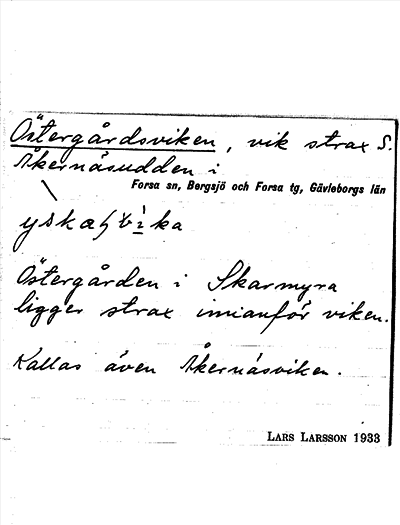 Östergårdsviken, vik strax S.
Åkernäsudden i
Forsa sn, Bergsjö och Forsa tg, Gävleborgs län
Östergården i Skarmyra
ligger strax innanför viken.
Kallas även Åkernäsviken.
LARS LARSSON 1933